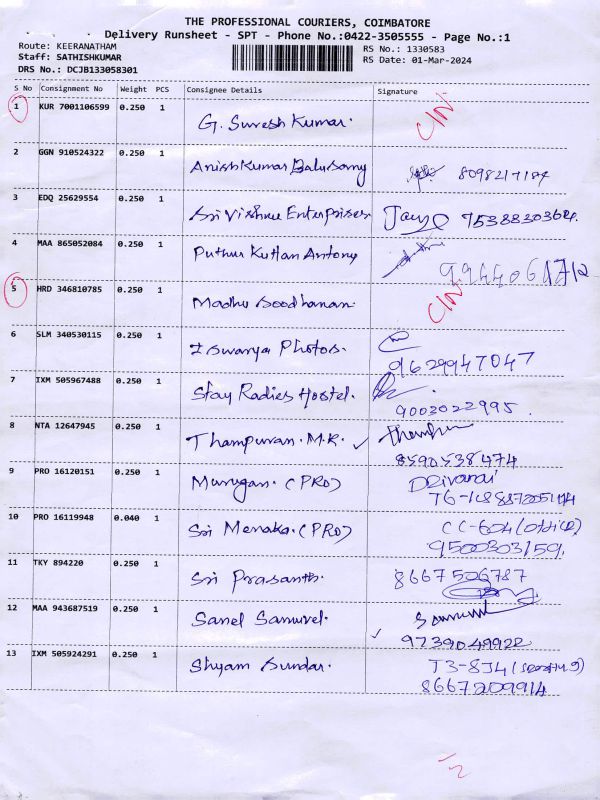 THE PROFESSIONAL COURIERS, COIMBATORE
Delivery Runsheet - SPT - Phone No.:0422-3505555 - Page No.:1
Route: KEERANATHAM
RS No.: 1330583
Staff: SATHISHKUMAR
RS Date: 01-Mar-2024
DRS No.: DCJB133058301
S No Consignment No Weight PCS Consignee Details Signature
1 KUR 7001106599 0.250 1 G. Suresh Kumar. C/N.
2 GGN 910524322 0.250 1 Anish Kumar Balusamy 8098217184
3 EDQ 25629554 0.250 1 Sri Vishnu Enterprises 7538830364.
4 MAA 865052084 0.250 1 Puthur Kuttan Antony 9944061712
5 HRD 346810785 0.250 1 Madhu Soodhanan. C/N.
6 SLM 340530115 0.250 1 Iswarya Photos. 9629947047
7 IXM 505967488 0.250 1 Stay Radies Hostel. 9003022995.
8 NTA 12647945 0.250 1 Thampuran. M.R. ✓ 8590538474
9 PRO 16120151 0.250 1 Murugan. (PRO)
10 PRO 16119948 0.040 1 Sri Menaka. (PRO) CC-604 (office)
9500303159.
11 TKY 894220 0.250 1 Sri Prasanth. 8667506787
12 MAA 943687519 0.250 1 Sanel Samuvel. ✓ 9739049922
13 IXM 505924291 0.250 1 Shyam Sundar. T3-8J4
8667209914